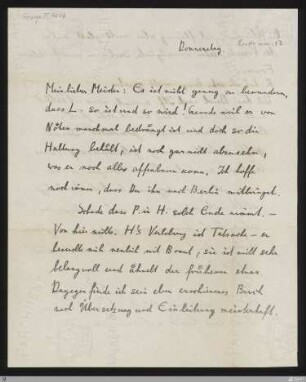 Donnerstag
Mein lieber Meister: Es ist nicht genug zu bewundern,
dass L. so ist und so wird! Gerade weil er von
Nöten manchmal bedrängt ist und doch so die
Haltung behält, ist noch gar nicht abzusehen,
was er noch alles
noch immer, dass Du ihn nach Berlin mitbringst.
Schade dass P. in H. solch Ende nimmt. –
Von hier nichts. H's Verlobung ist Tatsache – er
besucht mich neulich mit Braut, sie ist nicht sehr
belangvoll und ähnelt der früheren etwas
Dagegen finde ich sein eben erschienenes Buch
nach Übersetzung und Einleitung meisterhaft.